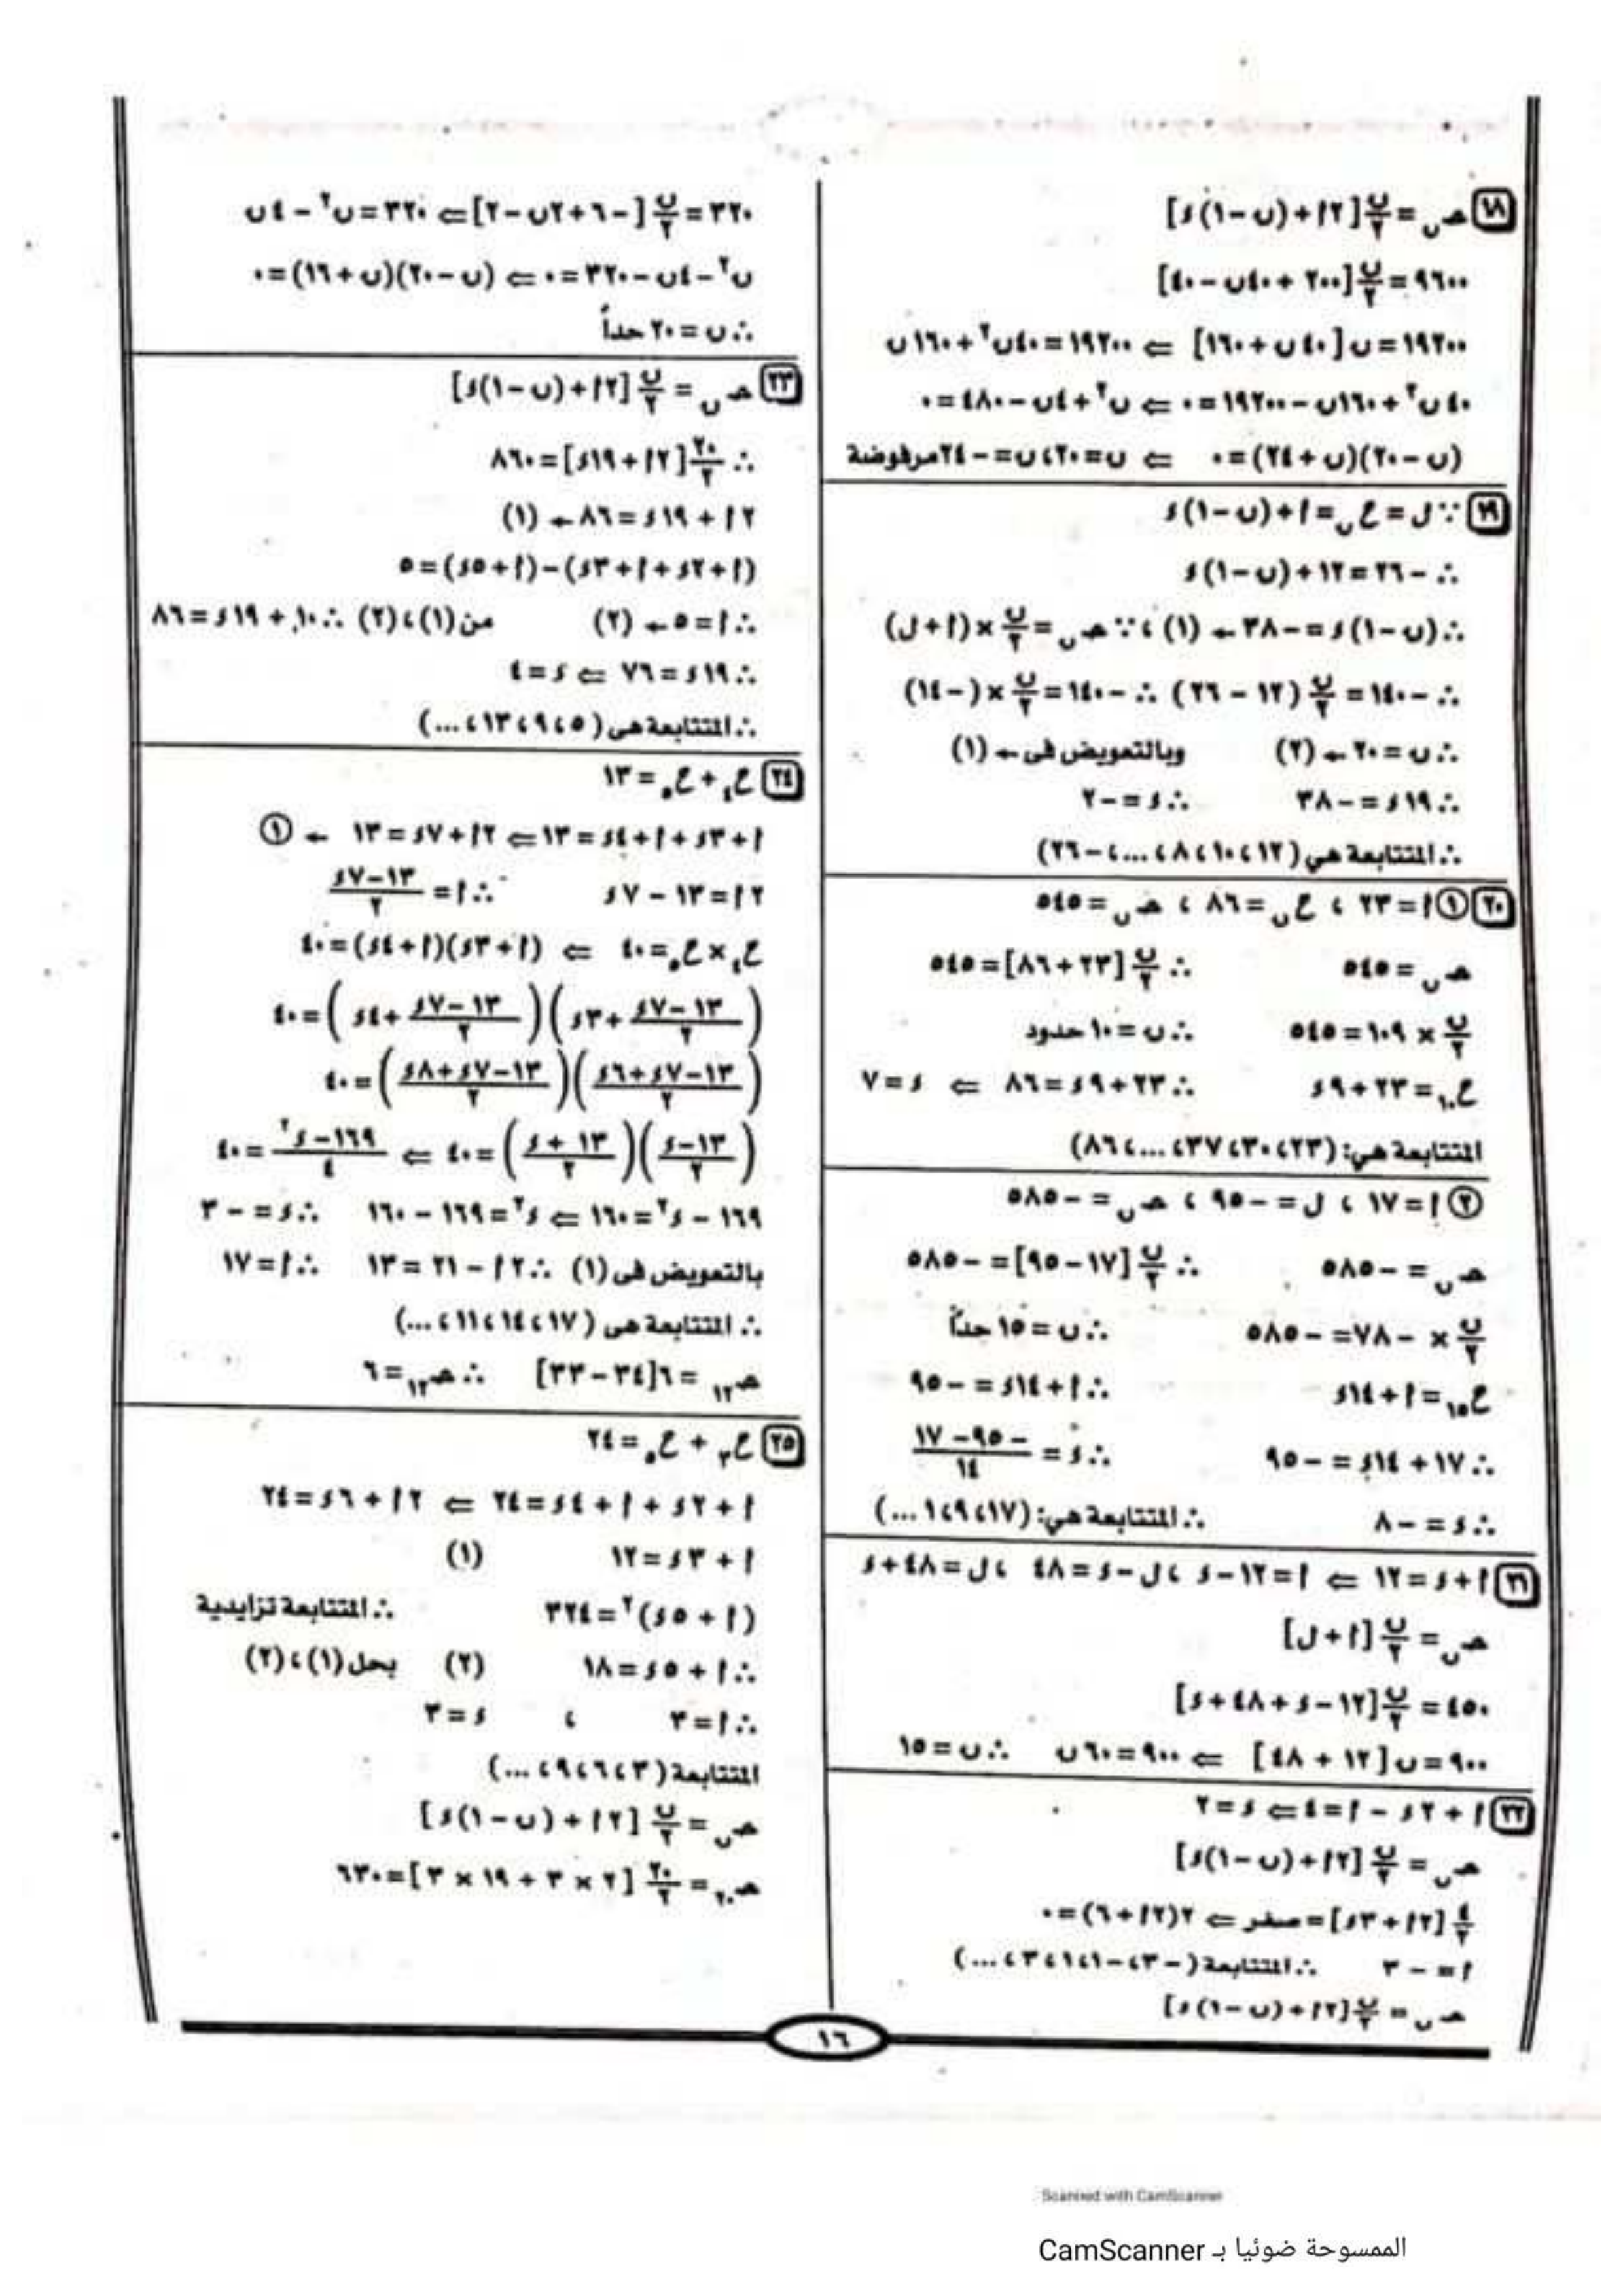 ١٨ حـن = ن/٢ [٢أ + (ن-١)ء]
٩٦٠٠ = ن/٢ [٢٠٠ + ٤٠ن - ٤٠]
١٩٢٠٠ = ن[٤٠ن + ١٦٠] ⇐ ١٩٢٠٠ = ٤٠ن² + ١٦٠ن
٤٠ن² + ١٦٠ن - ١٩٢٠٠ = ٠ ⇐ ن² + ٤ن - ٤٨٠ = ٠
(ن - ٢٠)(ن + ٢٤) = ٠ ⇐ ن = ٢٠، ن = -٢٤ مرفوضة
١٩ ∵ ل = حن = أ + (ن-١)ء
∴ -٢٦ = ١٢ + (ن-١)ء
∴ (ن-١)ء = -٣٨ ← (١)، ∵ حـن = ن/٢ × (أ + ل)
∴ -١٤٠ = ن/٢ (١٢ - ٢٦) ∴ -١٤٠ = ن/٢ × (-١٤)
∴ ن = ٢٠ ← (٢) وبالتعويض فى ← (١)
∴ ١٩ء = -٣٨ ∴ ء = -٢
∴ المتتابعة هي (١٢، ١٠، ٨، ...، -٢٦)
٢٠ ① أ = ٢٣ ، حن = ٨٦ ، حـن = ٥٤٥
حـن = ٥٤٥ ∴ ن/٢ [٢٣ + ٨٦] = ٥٤٥
ن/٢ × ١٠٩ = ٥٤٥ ∴ ن = ١٠ حدود
ح١٠ = ٢٣ + ٩ء ∴ ٢٣ + ٩ء = ٨٦ ⇐ ء = ٧
المتتابعة هي: (٢٣، ٣٠، ٣٧، ...، ٨٦)
② أ = ١٧ ، ل = -٩٥ ، حـن = -٥٨٥
حـن = -٥٨٥ ∴ ن/٢ [١٧ - ٩٥] = -٥٨٥
ن/٢ × -٧٨ = -٥٨٥ ∴ ن = ١٥ حداً
ح١٥ = أ + ١٤ء ∴ أ + ١٤ء = -٩٥
∴ ١٧ + ١٤ء = -٩٥ ∴ ء = (-٩٥ - ١٧)/١٤
∴ ء = -٨ ∴ المتتابعة هي: (١٧، ٩، ١، ...)
٢١ أ + ء = ١٢ ⇐ أ = ١٢ - ء ، ل - ء = ٤٨ ، ل = ٤٨ + ء
حـن = ن/٢ [أ + ل]
٤٥٠ = ن/٢ [١٢ - ء + ٤٨ + ء]
٩٠٠ = ن[١٢ + ٤٨] ⇐ ٩٠٠ = ٦٠ن ∴ ن = ١٥
٢٢ أ + ٢ء - أ = ٤ ⇐ ء = ٢
حـن = ن/٢ [٢أ + (ن-١)ء]
٤/٢ [٢أ + ٣ء] = صفر ⇐ ٢(٢أ + ٦) = ٠
أ = -٣ ∴ المتتابعة (-٣، -١، ١، ٣، ...)
حـن = ن/٢ [٢أ + (ن-١)ء]
٣٢٠ = ن/٢ [-٦ + ٢ن - ٢] ⇐ ٣٢٠ = ن² - ٤ن
ن² - ٤ن - ٣٢٠ = ٠ ⇐ (ن - ٢٠)(ن + ١٦) = ٠
∴ ن = ٢٠ حداً
٢٣ حـن = ن/٢ [٢أ + (ن-١)ء]
∴ ٢٠/٢ [٢أ + ١٩ء] = ٨٦٠
٢أ + ١٩ء = ٨٦ ← (١)
(أ + ٢ء + أ + ٣ء) - (أ + ٥ء) = ٥
∴ أ = ٥ ← (٢) من (١)، (٢) ∴ ١٠ + ١٩ء = ٨٦
∴ ١٩ء = ٧٦ ⇐ ء = ٤
∴ المتتابعة هى (٥، ٩، ١٣، ...)
٢٤ ح٤ + ح٥ = ١٣
أ + ٣ء + أ + ٤ء = ١٣ ⇐ ٢أ + ٧ء = ١٣ ← ①
٢أ = ١٣ - ٧ء ∴ أ = (١٣ - ٧ء)/٢
ح٤ × ح٥ = ٤٠ ⇐ (أ + ٣ء)(أ + ٤ء) = ٤٠
((١٣ - ٧ء)/٢ + ٣ء)((١٣ - ٧ء)/٢ + ٤ء) = ٤٠
((١٣ - ٧ء + ٦ء)/٢)((١٣ - ٧ء + ٨ء)/٢) = ٤٠
((١٣ - ء)/٢)((١٣ + ء)/٢) = ٤٠ ⇐ (١٦٩ - ء²)/٤ = ٤٠
١٦٩ - ء² = ١٦٠ ⇐ ء² = ١٦٩ - ١٦٠ ∴ ء = -٣
بالتعويض فى (١) ∴ ٢أ - ٢١ = ١٣ ∴ أ = ١٧
∴ المتتابعة هى (١٧، ١٤، ١١، ...)
حـ١٢ = ٦[٣٤ - ٣٣] ∴ حـ١٢ = ٦
٢٥ ح٣ + ح٥ = ٢٤
أ + ٢ء + أ + ٤ء = ٢٤ ⇐ ٢أ + ٦ء = ٢٤
أ + ٣ء = ١٢ (١)
(أ + ٥ء)² = ٣٢٤ ∴ المتتابعة تزايدية
∴ أ + ٥ء = ١٨ (٢) بحل (١)، (٢)
∴ أ = ٣ ، ء = ٣
المتتابعة (٣، ٦، ٩، ...)
حـن = ن/٢ [٢أ + (ن - ١)ء]
حـ٢٠ = ٢٠/٢ [٢ × ٣ + ١٩ × ٣] = ٦٣٠
١٦
Scanned with CamScanner
الممسوحة ضوئيا بـ CamScanner